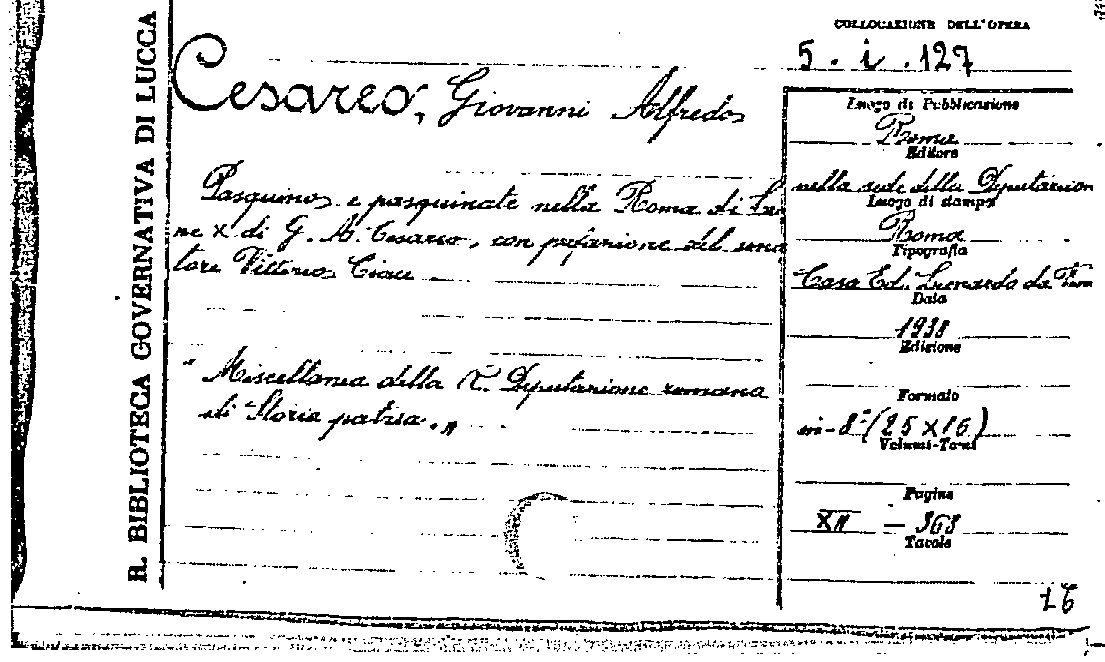 R. BIBLIOTECA GOVERNATIVA DI LUCCA
COLLOCAZIONE DELL'OPERA
5 . i . 127
Cesareo, Giovanni Alfredo
Pasquino e pasquinate nella Roma di Leo
ne X di G. A. Cesareo, con prefazione del sena
tore Vittorio Cian
"Miscellanea della R. Deputazione romana
di Storia patria."
Luogo di Pubblicazione
Roma
Editore
nella sede della Deputazion
Luogo di stampa
Roma
Tipografia
Casa Ed. Leonardo da Vin
Data
1938
Edizione
Formato
in-8° (25 X 16)
Volumi-Tomi
Pagine
XII — 363
Tavole
16